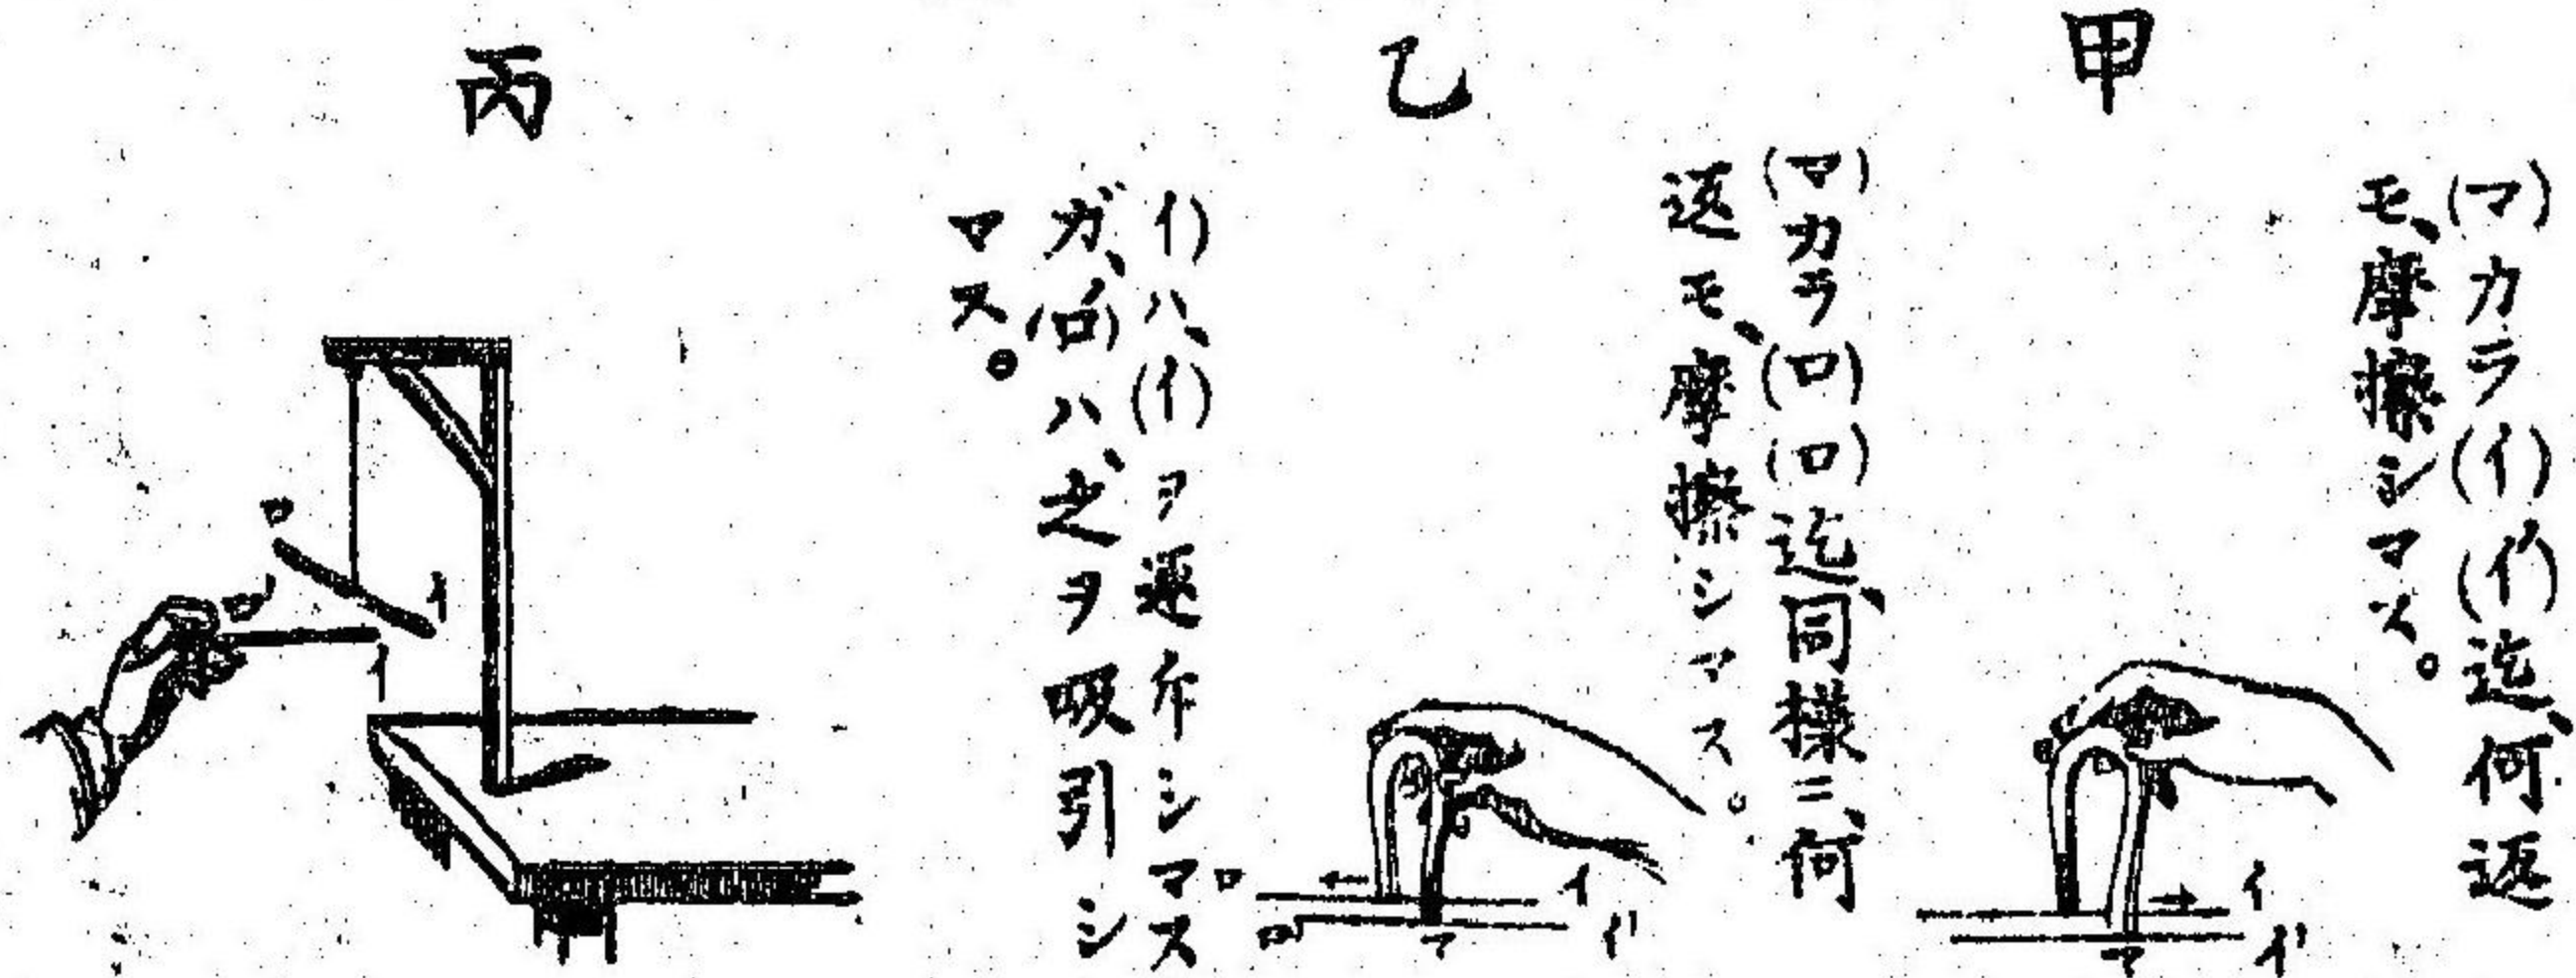 甲
(マ)カラ(イ)(イ')迄、何返
モ、摩擦シマス。
イ
イ'
マ
乙
(マ)カラ(ロ)(ロ)迄、同様ニ、何
返モ、摩擦シマス。
ロ
イ
ロ'
イ'
マ
丙
イ)ハ、(イ)ヲ逐斥シマス
ガ、(ロ')ハ、之ヲ吸引シ
マス。
ロ
イ
ロ'
イ